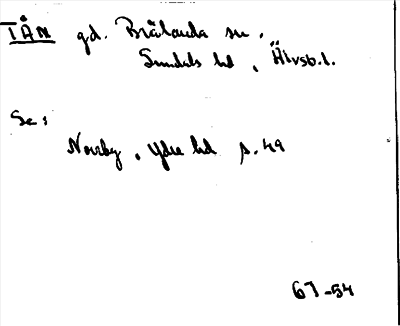 TÅN gd. Brålanda sn.
Sundals hd, Älvsb.l.
Se:
Norrby, Ydre hd s. 49
67-54